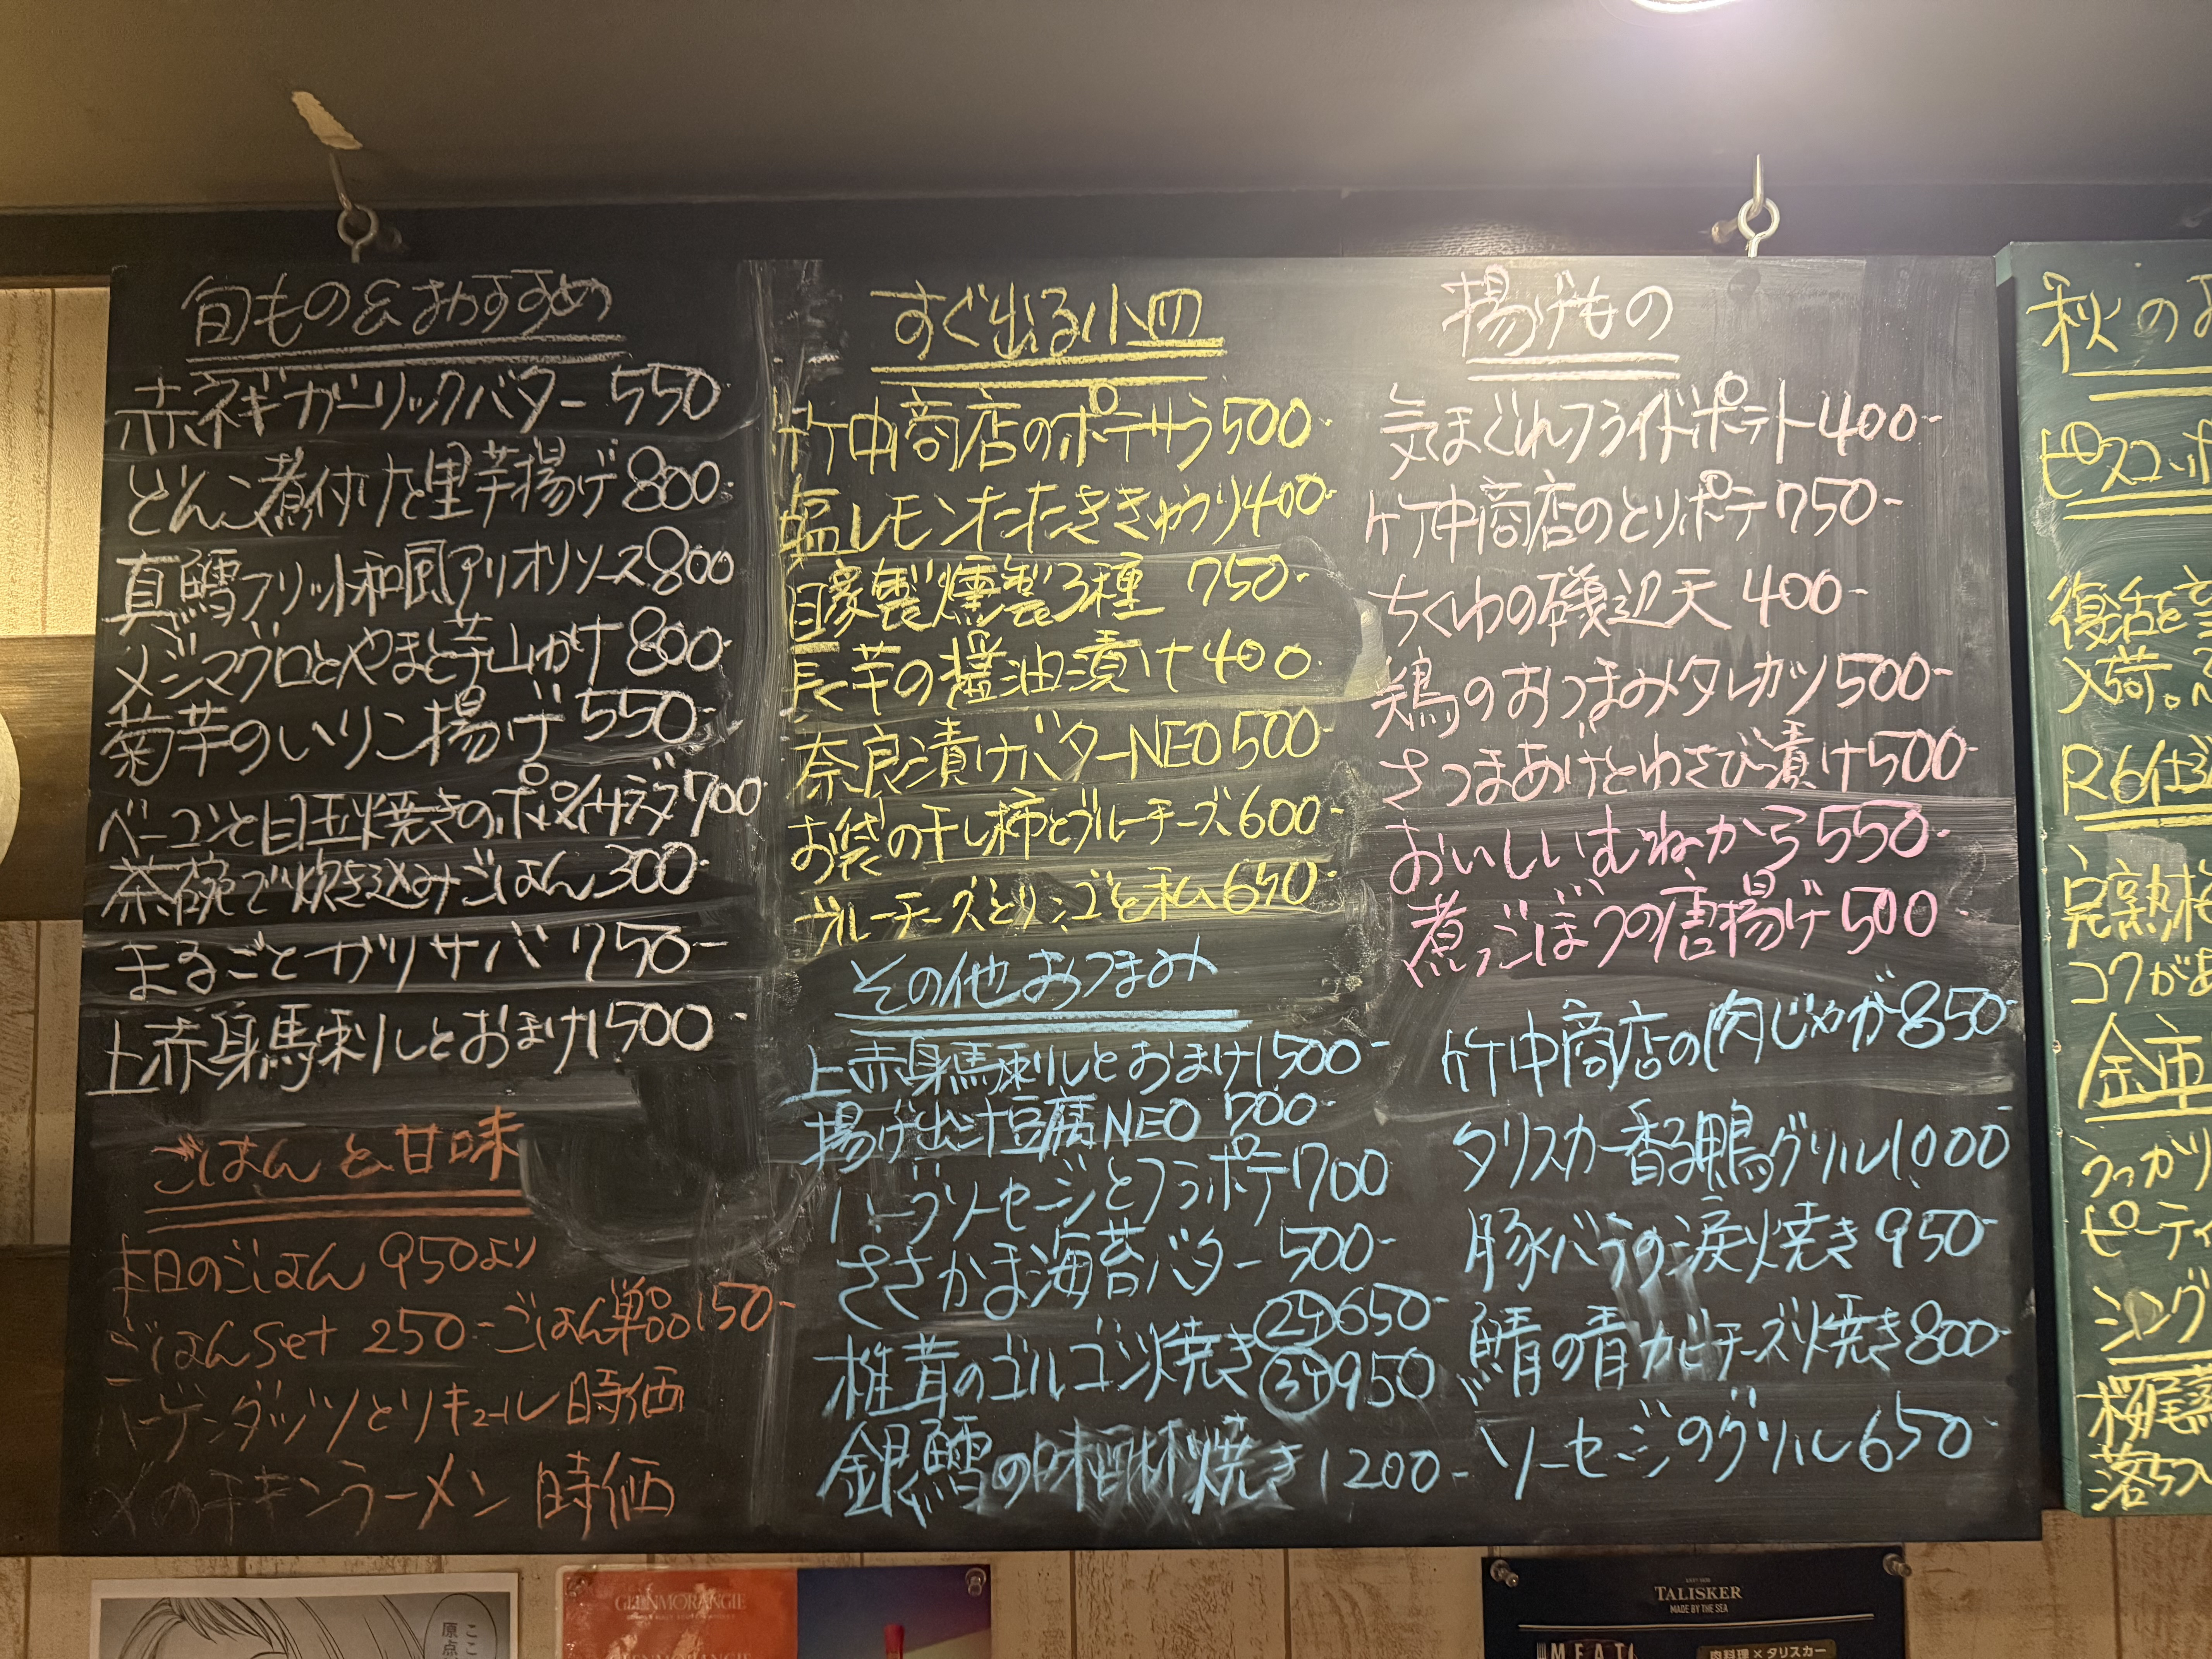 旬もの&おすすめ
赤ネギガーリックバター 550-
どんこ煮付けと里芋揚げ 800-
真鱈フリット和風アリオリソース 800
メジマグロとやまと芋山かけ 800-
菊芋のいりこ揚げ 550-
ベーコンと目玉焼きのポパイサラダ 700
茶碗で炊き込みごはん 300-
まるごとガリサバ 750-
上赤身馬刺しとおまけ 1500-
ごはん&甘味
本日のごはん 950より
ごはんSet 250- ごはん単品 150-
ハーゲンダッツとリキュール 時価
〆のチキンラーメン 時価
すぐ出る小皿
竹中商店のポテサラ 500-
塩レモンたたききゅうり 400-
自家製燻製3種 750-
長芋の醤油漬け 400-
奈良漬けバターNEO 500-
お袋の干し柿とブルーチーズ 600-
ブルーチーズとリンゴと私 650-
その他おつまみ
上赤身馬刺しとおまけ 1500-
揚げ出汁豆腐NEO 700-
ハーブソーセージとフラポテ 700
ささかま海苔バター 500-
椎茸のゴルゴンゾ焼き 2ヶ 650-
3ヶ 950
銀鱈の味醂焼き 1200-
揚げもの
気まぐれフライドポテト 400-
竹中商店のとりポテ 750-
ちくわの磯辺天 400-
鶏のおつまみタレカツ 500-
さつまあげとわさび漬け 500-
おいしいむねから 550-
煮ごぼうの唐揚げ 500-
竹中商店の肉じゃが 850-
タリスカー香る鴨グリル 1000
豚バラの涙焼き 950-
鯖の青カビチーズ焼き 800-
ソーセージのグリル 650-
秋の
ピスコ
復活を
入荷。
R6仕
完熟
コクがあ
金市
うっかり
ピーティ
シング
桜尾蒸
落ちつ
ここ
原点
GLENMORANGIE
GLENMORANGIE
TALISKER
MADE BY THE SEA
MEAT
肉料理×タリスカー